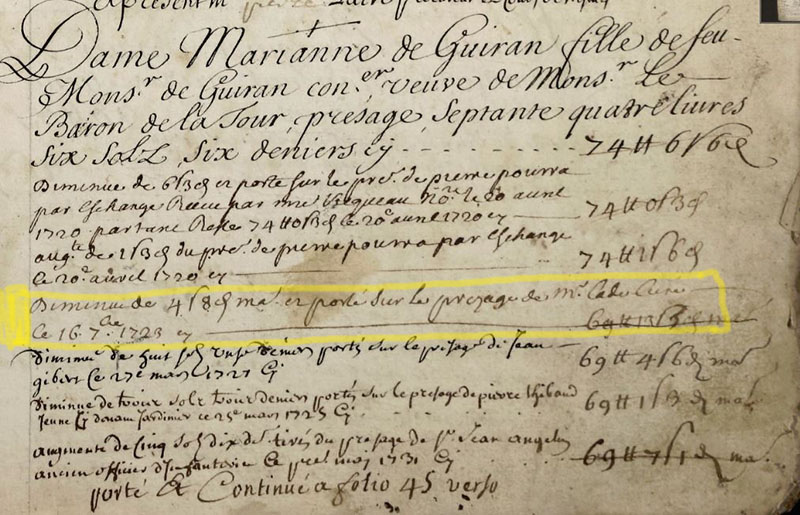 Dame Marianne de Guiran fille de feu
Mons.r de Guiran con.er veuve de Mons.r Le
Baron de la Tour, présage, septante quatre livres
six solz, six deniers cy 74 tt 6 s 6 d
Diminue de 6 s 3 d et porté sur le pre.e de pierre pourra
par Eschange Receu par me no.re le 20 avril
1720 partant Reste 74 tt 0 s 3 d le 20.e avril 1720 cy 74 tt 0 s 3 d
aug.te de 1 s 3 d du pre.e de pierre pourra par Eschange
le 20.e avril 1720 cy 74 tt 1 s 6 d
Diminue de 4 s 8 d ma. et porté sur le presage de m.r
le 16 7.bre 1723 cy 69 tt 13 s 3 d me
diminue de huit sols onse deniers portés sur le présage de Jean
gibert ce 27e mars 1727 Cy 69 tt 4 s 6 d ma.
Diminue de trois solz trois deniers portés sur le présage de pierre thibaud
Jeune jardinier ce mars Cy 69 tt 1 s 3 d ma.
augmente de Cinq sols dix d. tirés du présage de S.r Jean
ancien officier d'Infanterie ce mai 1731 Cy 69 tt 7 s 1 d ma.
porté Et Continué a folio 45 verso